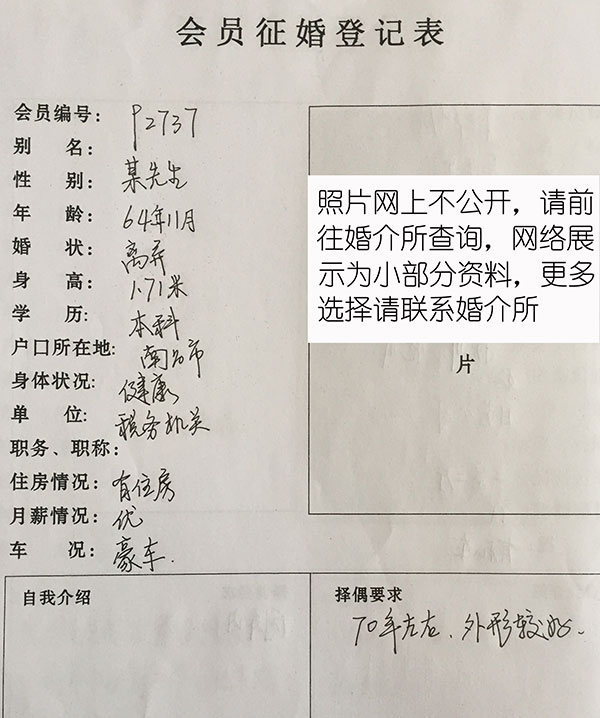 会员征婚登记表
会员编号: P2737
别 名:
性 别: 某先生
年 龄: 64年11月
婚 状: 离异
身 高: 1.71米
学 历: 本科
户口所在地: 南宁市
身体状况: 健康
单 位: 税务机关
职务、职称:
住房情况: 有住房
月薪情况: 优
车 况: 豪车.
照片网上不公开，请前
往婚介所查询，网络展
示为小部分资料，更多
选择请联系婚介所
片
自我介绍
择偶要求
70年左右、外形较好.